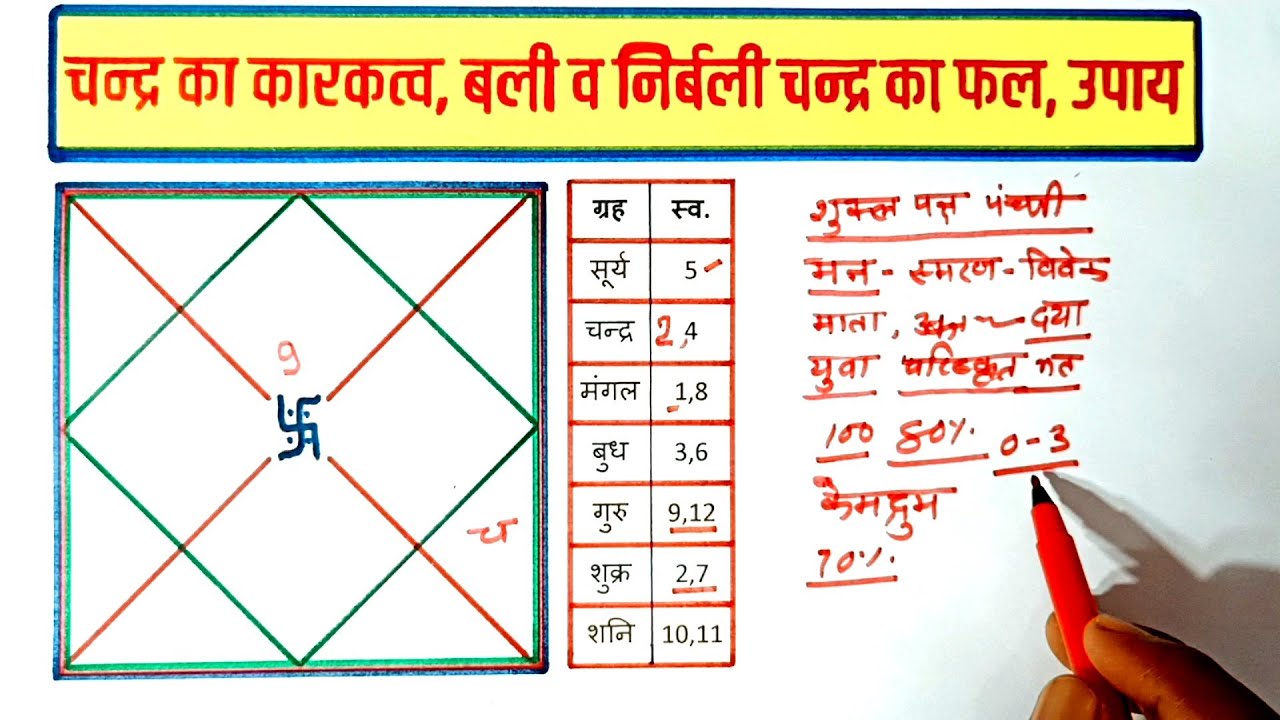 चन्द्र का कारकत्व, बली व निर्बली चन्द्र का फल, उपाय
9
च
ग्रह स्व.
सूर्य 5
चन्द्र 2,4
मंगल 1,8
बुध 3,6
गुरु 9,12
शुक्र 2,7
शनि 10,11
शुक्ल पक्ष
मन - स्मरण - विवेक
माता, दया
युवा परिष्कृत
100 80% 0-3
केमद्रुम
70%